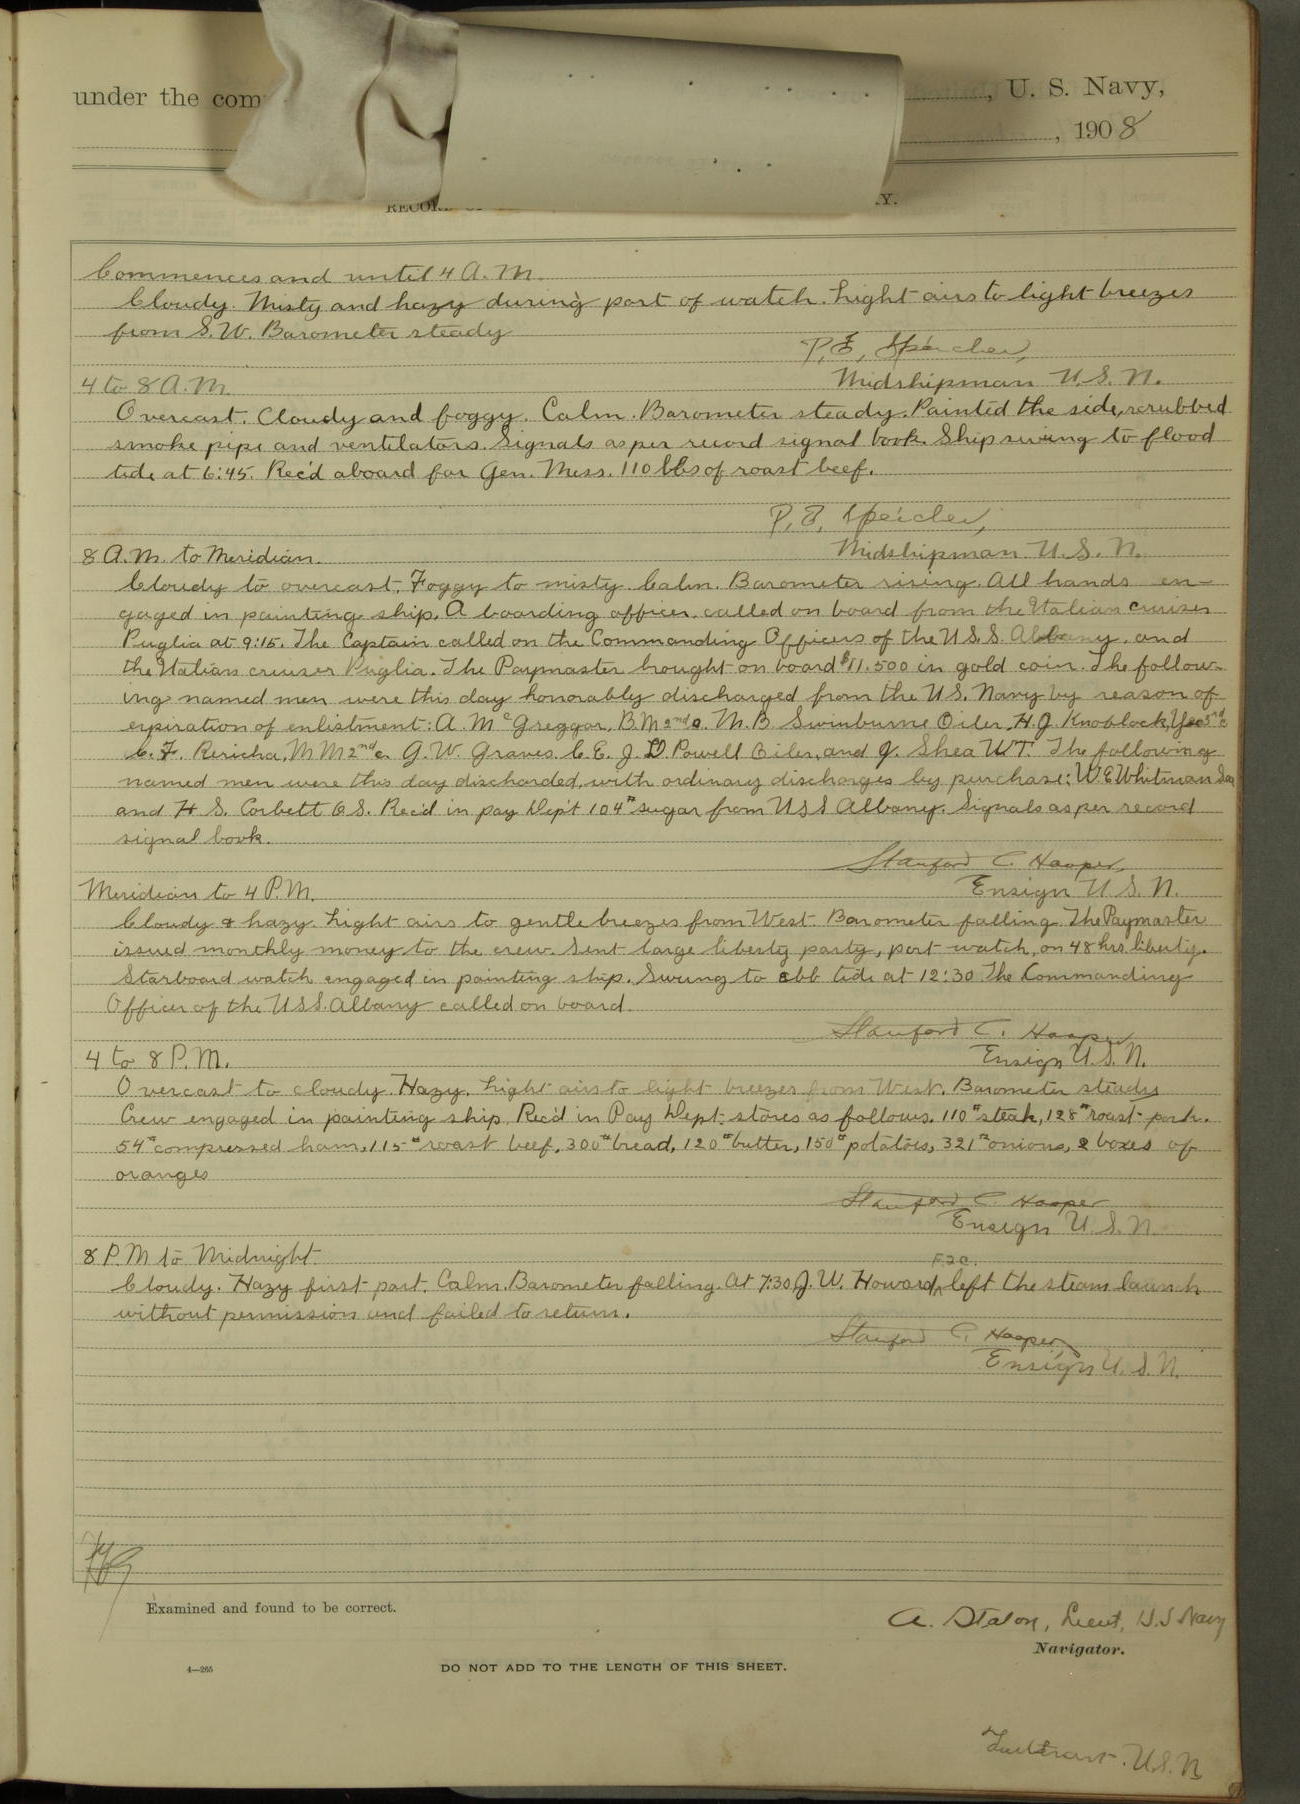 under the com , U. S. Navy,
, 1908
RECORD OF Y.
Commences and until 4 A.M.
Cloudy. Misty and hazy during part of watch. Light airs to light breezes
from S.W. Barometer steady
P. E. Speicher,
Midshipman U.S.N.
4 to 8 A.M.
Overcast. Cloudy and foggy. Calm. Barometer steady. Painted the side, scrubbed
smoke pipe and ventilators. Signals as per record signal book. Ship swung to flood
tide at 6:45. Rec'd aboard for Gen. Mess. 110 lbs of roast beef.
P. E. Speicher,
Midshipman U.S.N.
8 A.M. to Meridian.
Cloudy to overcast. Foggy to misty. Calm. Barometer rising. All hands en-
gaged in painting ship. A boarding officer called on board from the Italian cruiser
Puglia at 9:15. The Captain called on the Commanding Officers of the U.S.S. Albany. and
the Italian cruiser Puglia. The Paymaster brought on board $11.500 in gold coin. The follow-
ing named men were this day honorably discharged from the U.S. Navy by reason of
expiration of enlistment: A. McGreggor, B M 2nd c. M. B. Swinburne Oiler, H. J. Knoblock, Yeo 3rd c
C. F. Rericha, M M 2nd c. G. W. Graves. C. E. J. D. Powell Oiler, and J. Shea W T. The following
named men were this day discharded, with ordinary discharges by purchase: W E Whitman Sea
and H. S. Corbett O S. Rec'd in pay Dep't 104# sugar from U S S Albany. Signals as per record
signal book.
Stanford C. Hooper,
Ensign U S. N.
Meridian to 4 P.M.
Cloudy & hazy. Light airs to gentle breezes from West. Barometer falling. The Paymaster
issued monthly money to the crew. Sent large liberty party, port watch, on 48 hrs. liberty.
Starboard watch engaged in painting ship. Swung to ebb tide at 12:30 The Commanding
Officer of the U.S.S. Albany called on board.
Stanford C. Hooper
Ensign U.S.N.
4 to 8 P.M.
Overcast to cloudy. Hazy. Light airs to light breezes from West. Barometer steady
Crew engaged in painting ship. Rec'd in Pay Dept. stores as follows. 110# steak, 128# roast pork.
54# compressed ham, 115# roast beef, 300# bread, 120# butter, 150# potatoes, 321# onions, 2 boxes of
oranges
Stanford C. Hooper
Ensign U.S.N.
8 P.M to Midnight.
F.2c.
Cloudy. Hazy first part. Calm. Barometer falling. At 7:30 J. W. Howard, left the steam launch
without permission and failed to return.
Stanford C. Hooper,
Ensign U. S. N.
Examined and found to be correct.
A. Staton, Lieut, U.S Navy
Navigator.
4—265
DO NOT ADD TO THE LENGTH OF THIS SHEET.
Lieutenant. U.S.N.